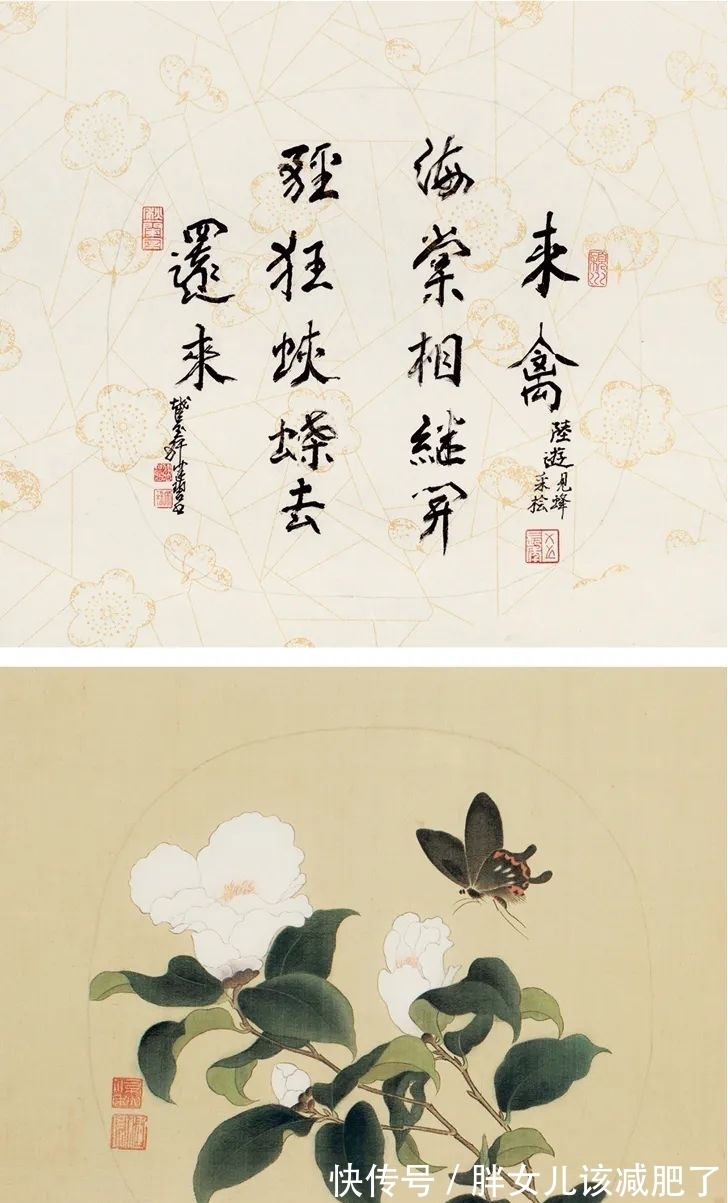 来禽
海棠相継開
輕狂蛺蝶去
還來
陸遊
見蜂
采桧
快传号/胖女儿该减肥了